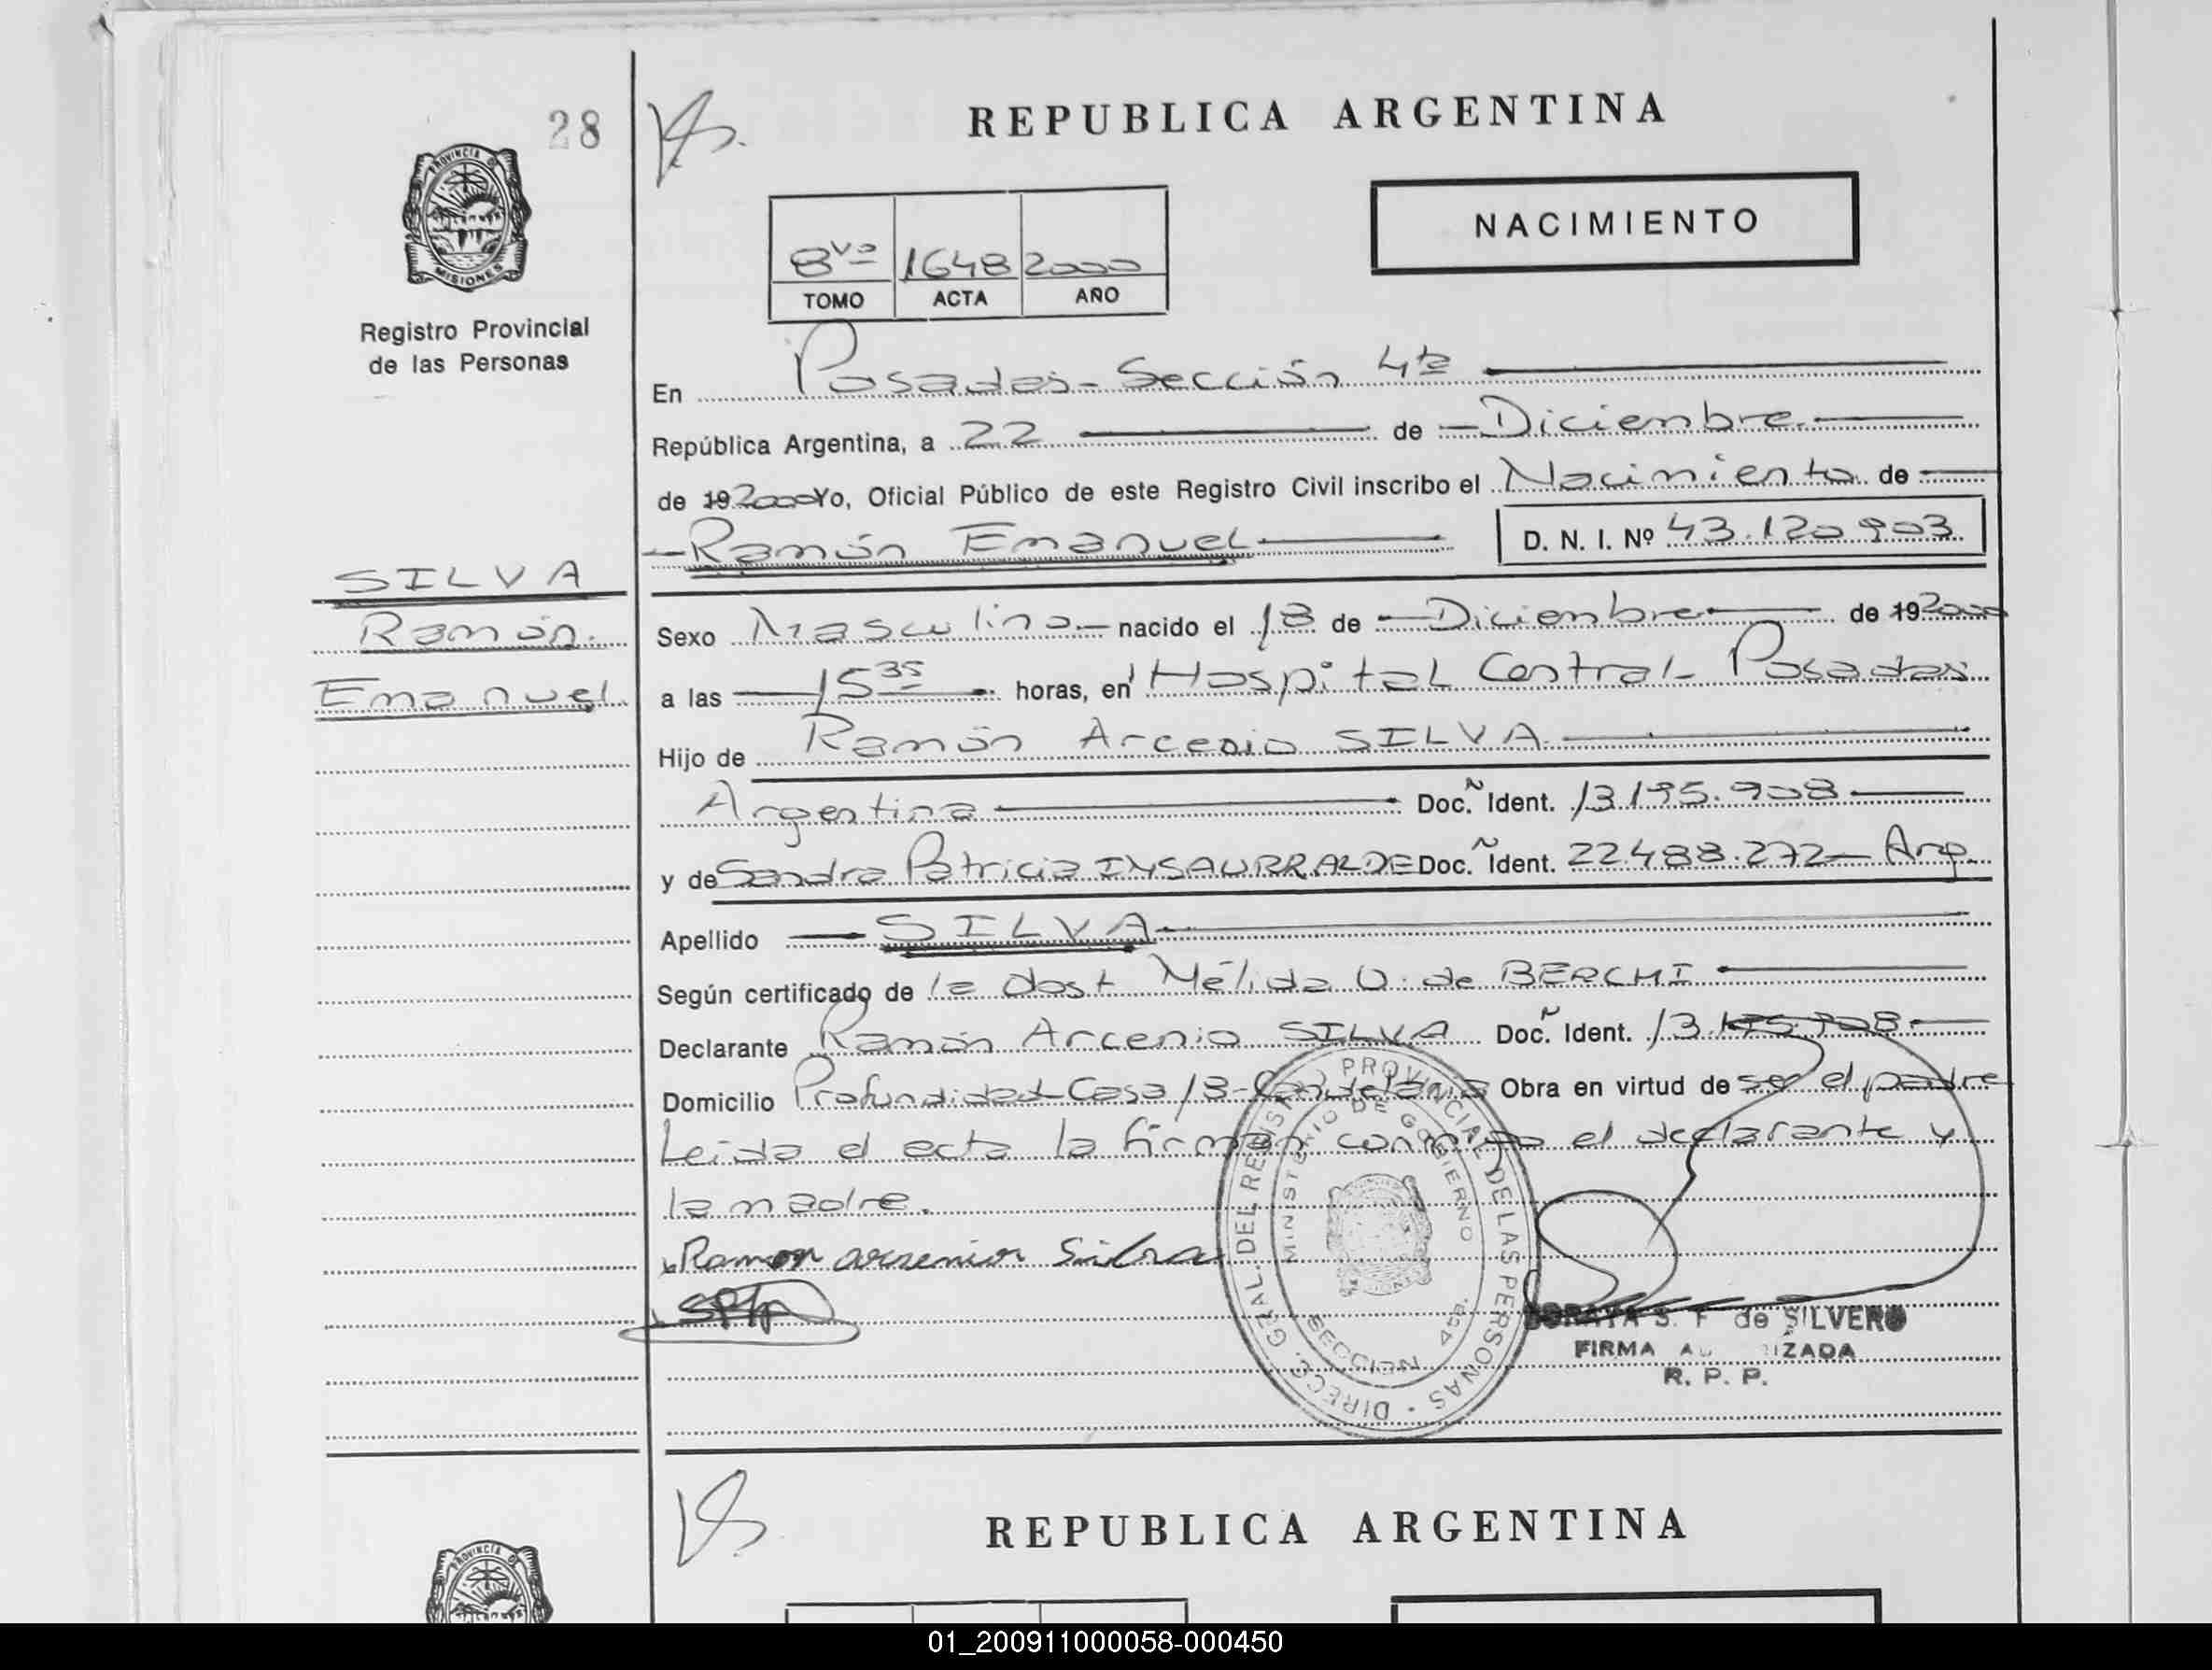 28
PROVINCIA DE
MISIONES
Registro Provincial
de las Personas
SILVA
Ramón
Emanuel
REPUBLICA ARGENTINA
NACIMIENTO
8vo 1648 2000
TOMO ACTA AÑO
En Posadas - Sección 4ta
República Argentina, a 22 de Diciembre
de 19 2000 Yo, Oficial Público de este Registro Civil inscribo el Nacimiento de
Ramón Emanuel D. N. I. Nº 43.120.903
Sexo Masculino nacido el 18 de Diciembre de 19 2000
a las 15 35 horas, en Hospital Central - Posadas
Hijo de Ramón Arcenio SILVA
Argentina Doc. Ident. 13.195.908
y de Sandra Patricia INSAURRALDE Doc. Ident. 22.488.272 - Arg.
Apellido SILVA
Según certificado de la Obst Mélida O. de BERCHI
Declarante Ramón Arcenio SILVA Doc. Ident. 13.195.908
Domicilio Profundidad - Casa 18 - Candelaria Obra en virtud de ser el padre
Leida el acta la firman conmigo el declarante y
la madre.
Ramon arsenior Silva
DIREC. GRAL. DEL REGISTRO PROVINCIAL DE LAS PERSONAS
MINISTERIO DE GOBIERNO
SECCION 4ta.
SORAYA S. F. de SILVERO
FIRMA AUTORIZADA
R. P. P.
REPUBLICA ARGENTINA
PROVINCIA DE
01_200911000058-000450